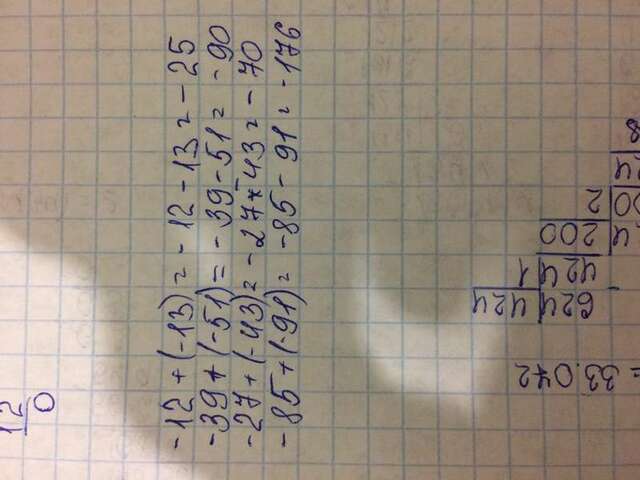 12
0
-12 + (-13) = -12 - 13 = -25
-39 + (-51) = -39 - 51 = -90
-27 + (-43) = -27 - 43 = -70
-85 + (-91) = -85 - 91 = -176
= 33.072
624 424
424 1
200
2